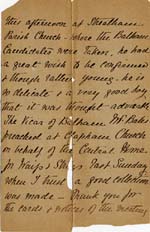 this afternoon at Streatham
Parish Church - where the Balham
Candidates were taken. he had
a great wish to be confirmed
& though rather young - he is
so delicate & a very good boy
that it was thought advisable
The Vicar of Balham Mr Baker
preached at Clapham Church
on behalf of the Central Home
for Waifs & Strays last Sunday
when I trust a good collection
was made - Thank you for
the cards & notices of the meeting